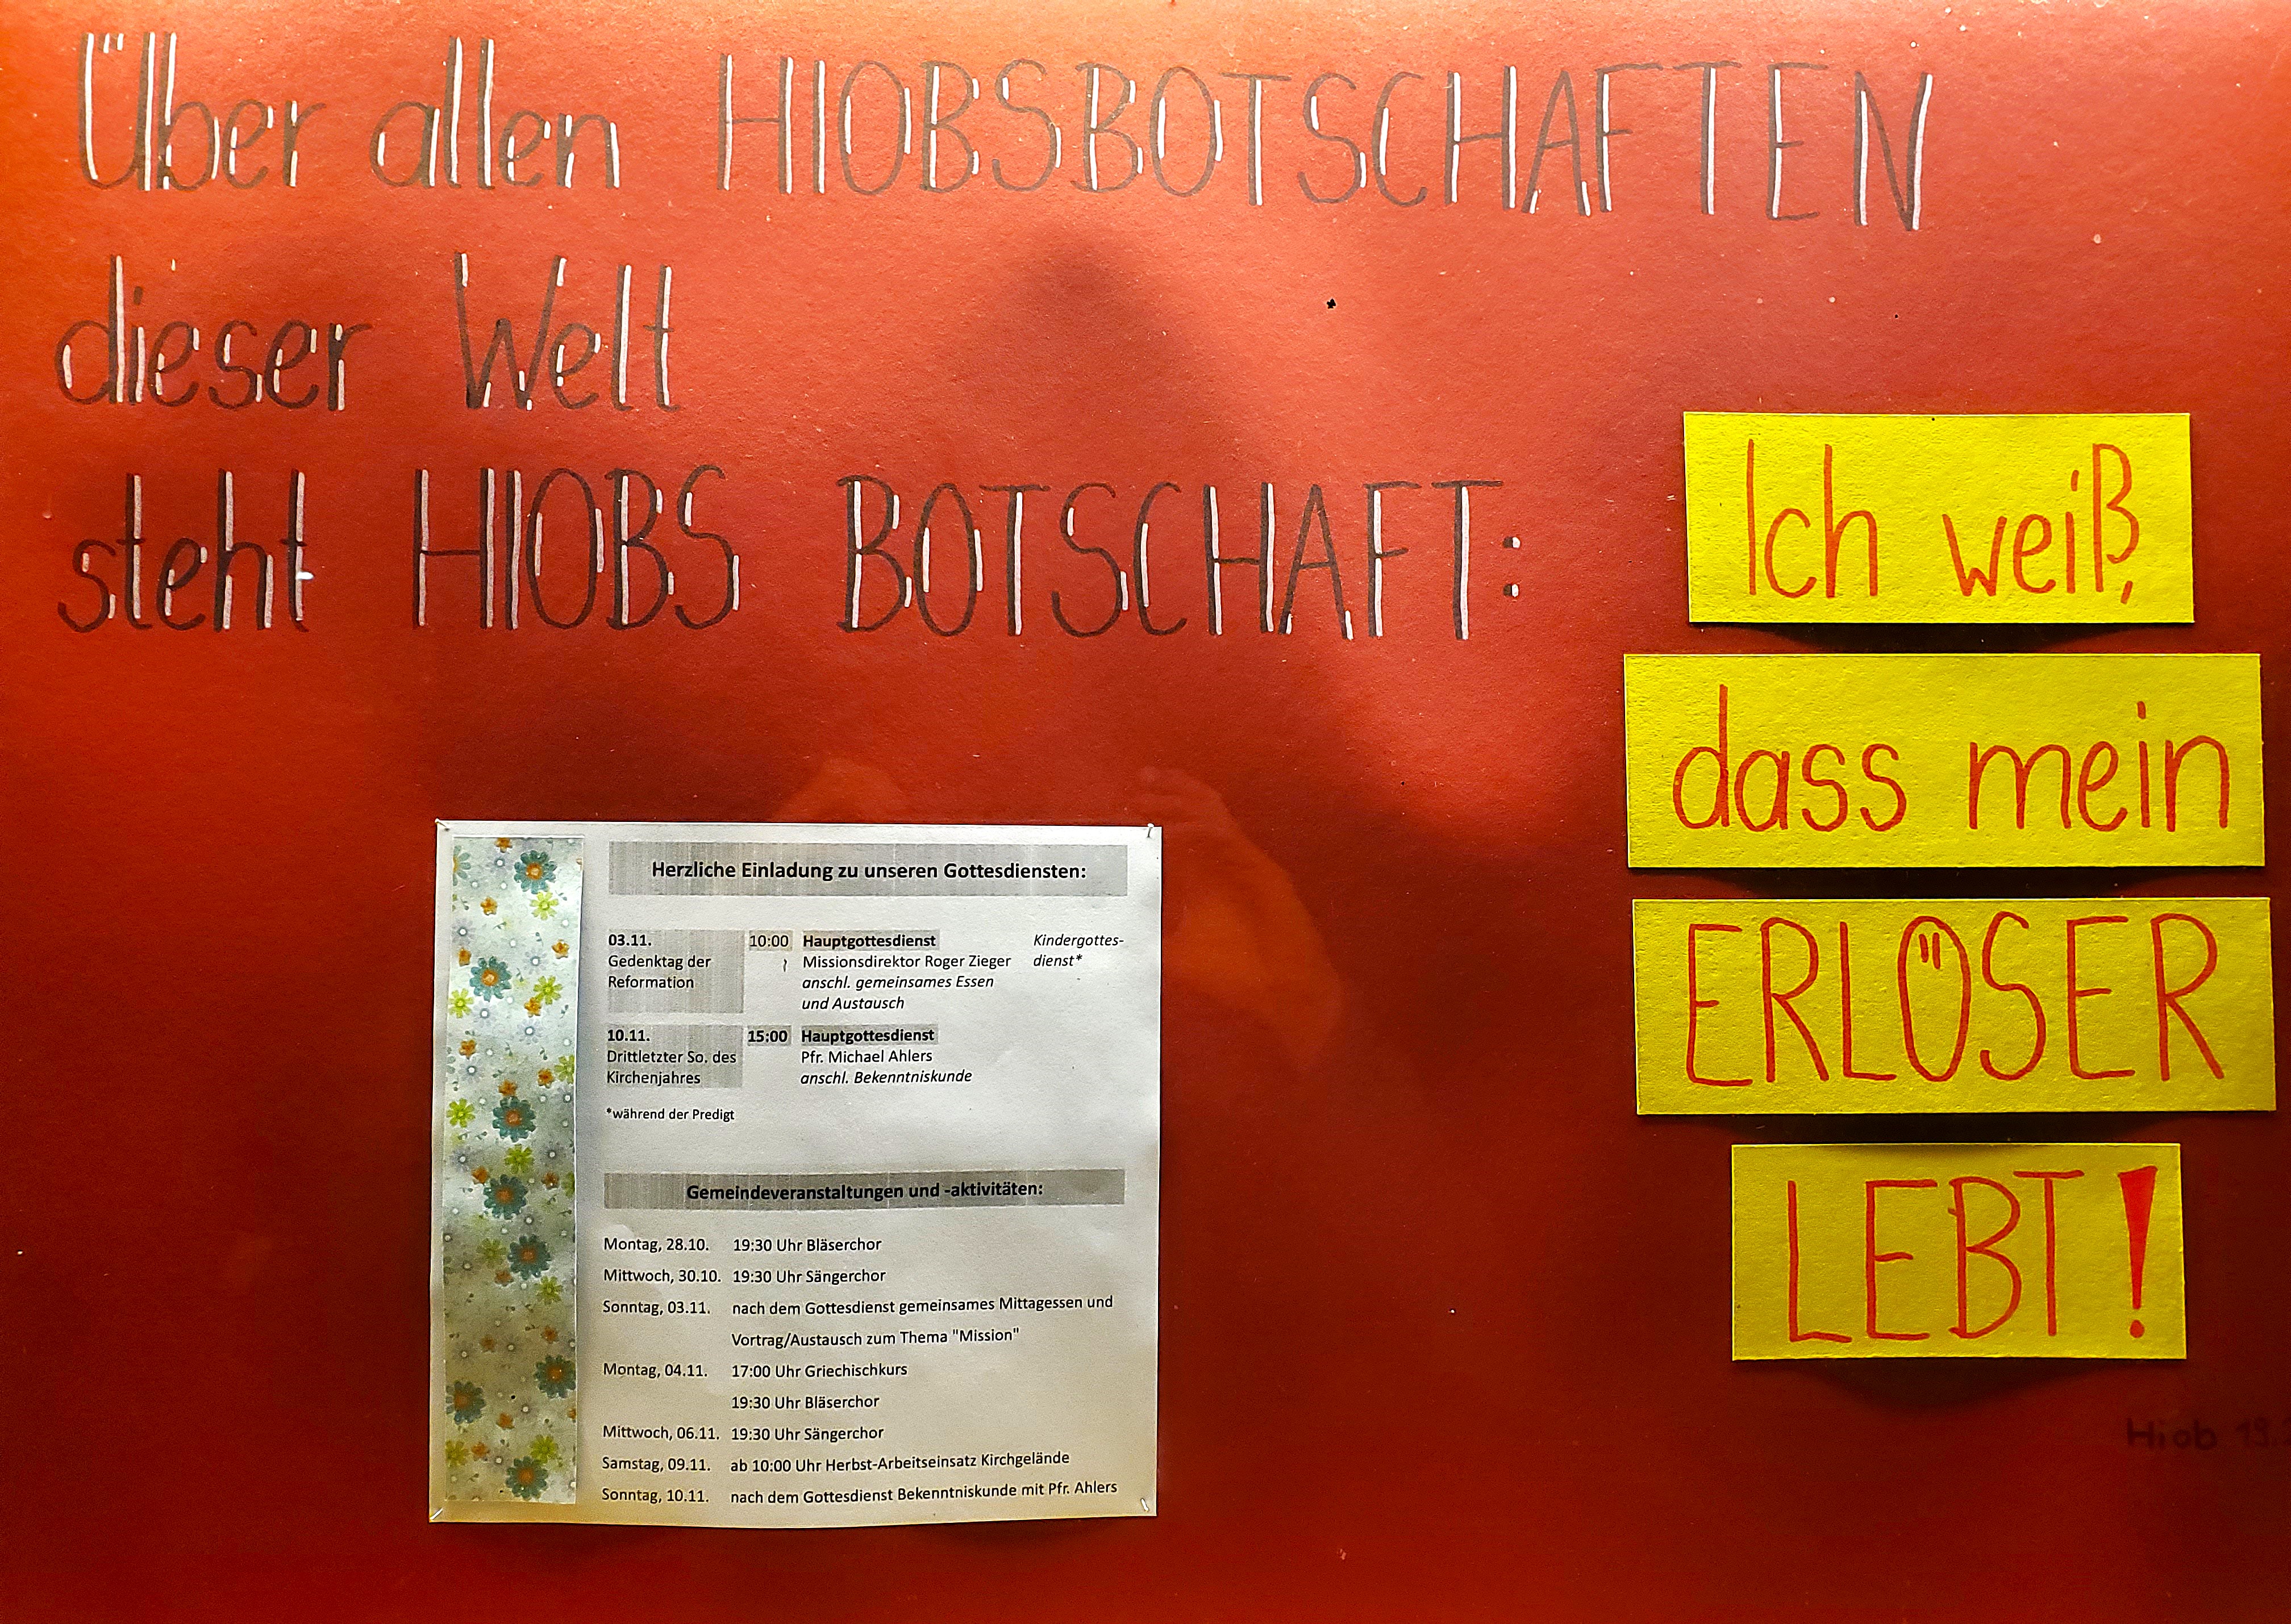 Über allen HIOBSBOTSCHAFTEN
dieser Welt
steht HIOBS BOTSCHAFT:
Ich weiß,
dass mein
ERLÖSER
LEBT!
Hiob 19
Herzliche Einladung zu unseren Gottesdiensten:
03.11. 10:00 Hauptgottesdienst Kindergottes-
Gedenktag der Missionsdirektor Roger Zieger dienst*
Reformation anschl. gemeinsames Essen
und Austausch
10.11. 15:00 Hauptgottesdienst
Drittletzter So. des Pfr. Michael Ahlers
Kirchenjahres anschl. Bekenntniskunde
*während der Predigt
Gemeindeveranstaltungen und -aktivitäten:
Montag, 28.10. 19:30 Uhr Bläserchor
Mittwoch, 30.10. 19:30 Uhr Sängerchor
Sonntag, 03.11. nach dem Gottesdienst gemeinsames Mittagessen und
Vortrag/Austausch zum Thema "Mission"
Montag, 04.11. 17:00 Uhr Griechischkurs
19:30 Uhr Bläserchor
Mittwoch, 06.11. 19:30 Uhr Sängerchor
Samstag, 09.11. ab 10:00 Uhr Herbst-Arbeitseinsatz Kirchgelände
Sonntag, 10.11. nach dem Gottesdienst Bekenntniskunde mit Pfr. Ahlers